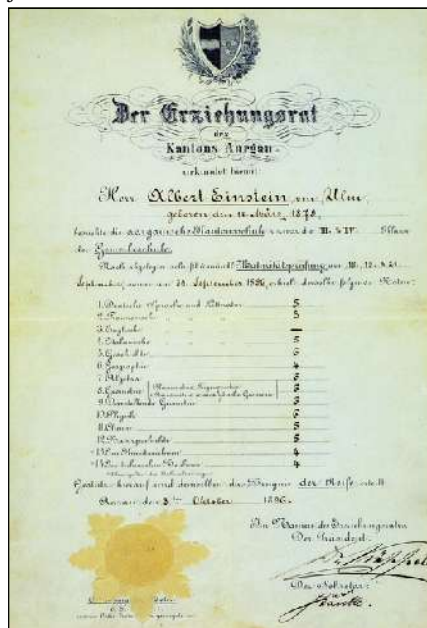 Der Erziehungsrat
des
Kantons Aargau
urkundet hiermit:
Herr Albert Einstein von Ulm,
geboren den 14. März 1879,
besuchte die aargauische Kantonsschule & zwar die III. & IV. Klasse
der Gewerbeschule.
Nach abgelegter schriftl. & mündl. Maturitätsprüfung am 18., 19. & 21.
September, sowie am 30. September 1896, erhielt derselbe folgende Noten:
1. Deutsche Sprache und Litteratur 5
2. Französisch 3
3. Englisch —
4. Italienisch 5
5. Geschichte 6
6. Geographie 4
7. Algebra 6
8. Geometrie 6
9. Darstellende Geometrie 5
10. Physik 6
11. Chemie 5
12. Naturgeschichte 5
13. Im Kunstzeichnen 4
14. Im technischen Zeichnen 4
Gestützt hierauf wird demselben das Zeugnis der Reife erteilt.
Aarau den 3ten Oktober 1896.
Im Namen des Erziehungsrates
Der Präsident:
Der Sekretär: